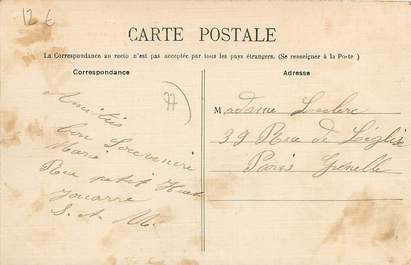 12 €
CARTE POSTALE
La Correspondance au recto n'est pas acceptée par tous les pays étrangers. (Se renseigner à la Poste)
Correspondance
Adresse
77
Amitiés
bon Souvenir
Marie
Rue petit
Jouarre
S. et M.
Madame Leclerc
39 Rue de Léglise
Paris Grenelle